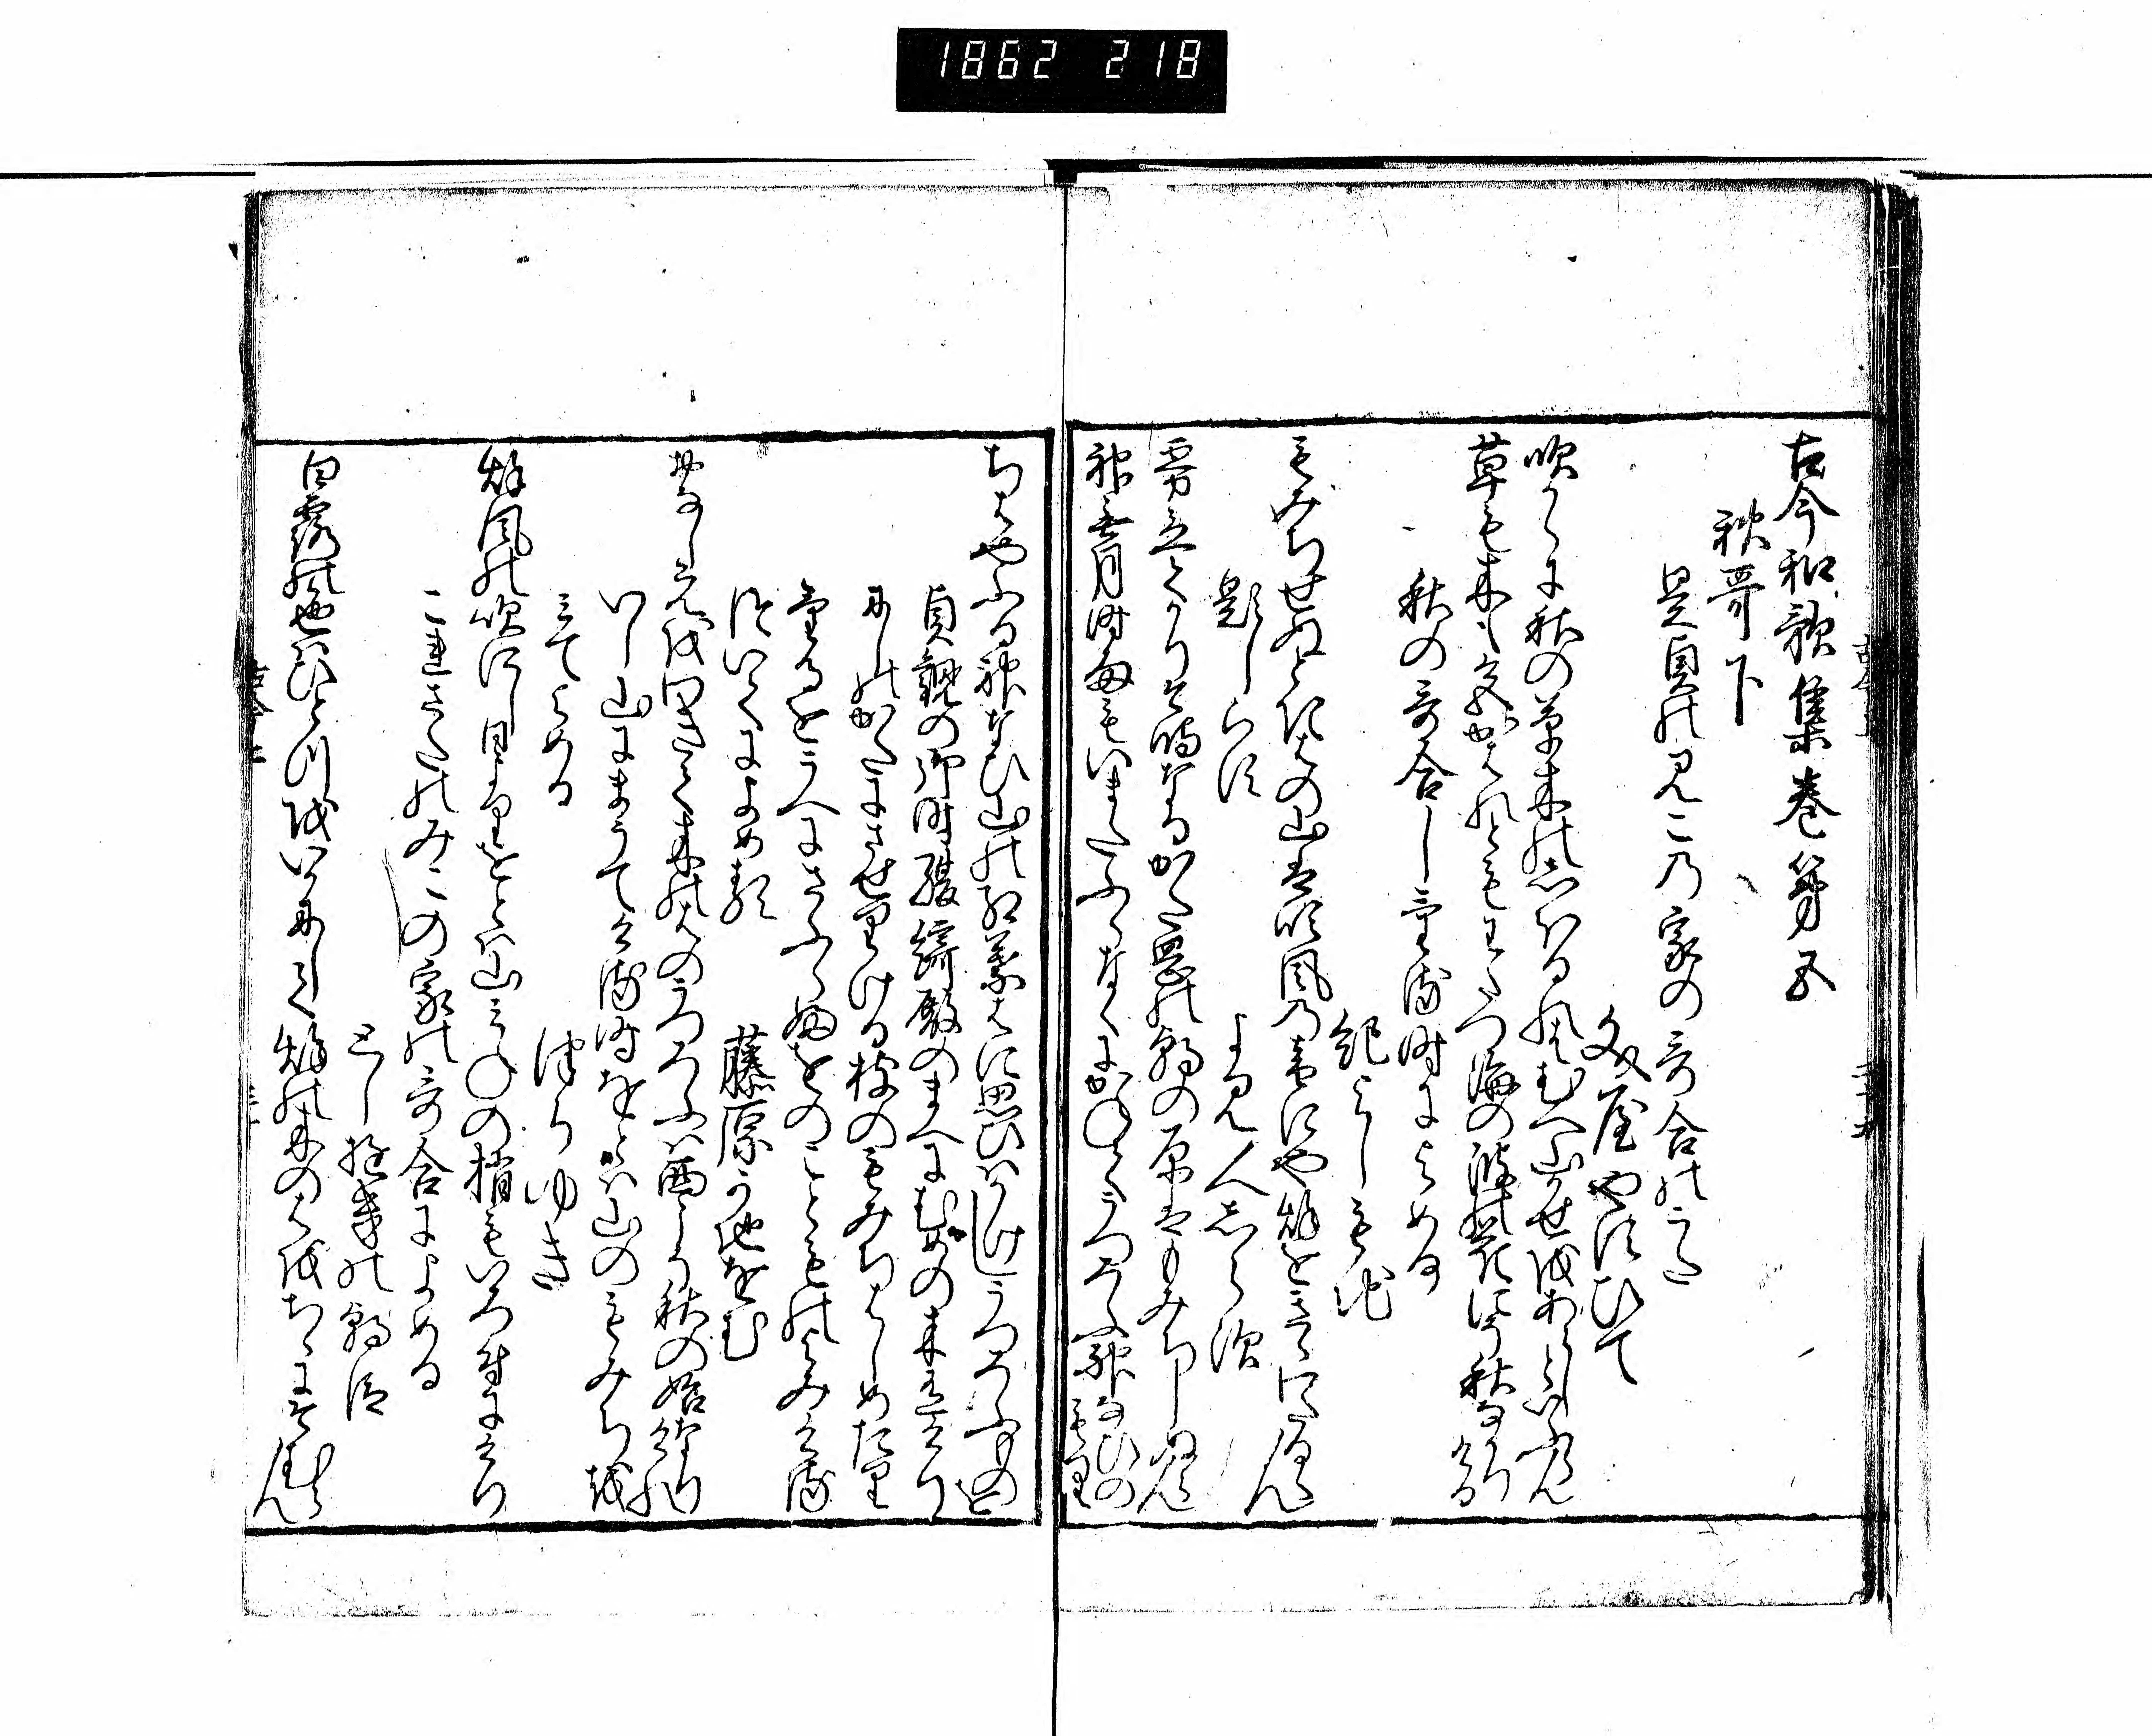 1862 218
古今和歌集巻第五
秋哥下
是貞のみこの家の哥合のうた
文屋やすひて
吹からに秋の草木のしほるれはむへ山かせをあらしといふらん
草も木も色かはれともわたつ海の浪の花にそ秋なかりける
秋の哥合しける時によめる
紀よしもち
もみちせぬときはの山は吹風の音にや秋をきゝわたるらん
題しらす
よみ人しらす
霧立て鴈そ鳴なるかた岡の朝の原はもみちしぬらん
神無月時雨もいまたふらなくにかねてうつろふ神なひのもり
ちはやふる神なひ山の紅葉はに思ひはかけしうつろふ物を
貞観の御時綾綺殿のまへにむめの木有けり
にしのかたにさせりける枝のもみちはしめたり
けるをうへにさふらふをのこともの
よみける
ついてによめる
藤原かちをむ
おなしえをわきて木のはのうつろふは西こそ秋の始なりけれ
いし山にまうてける時をとは山のもみちを
みてよめる
つらゆき
秋風の吹にし日よりをとは山みねの梢もいろ付にけり
これさたのみこの家の哥合によめる
としゆきの朝臣
白露の色はひとつをいかにして秋の木のはをちゝにそむらん